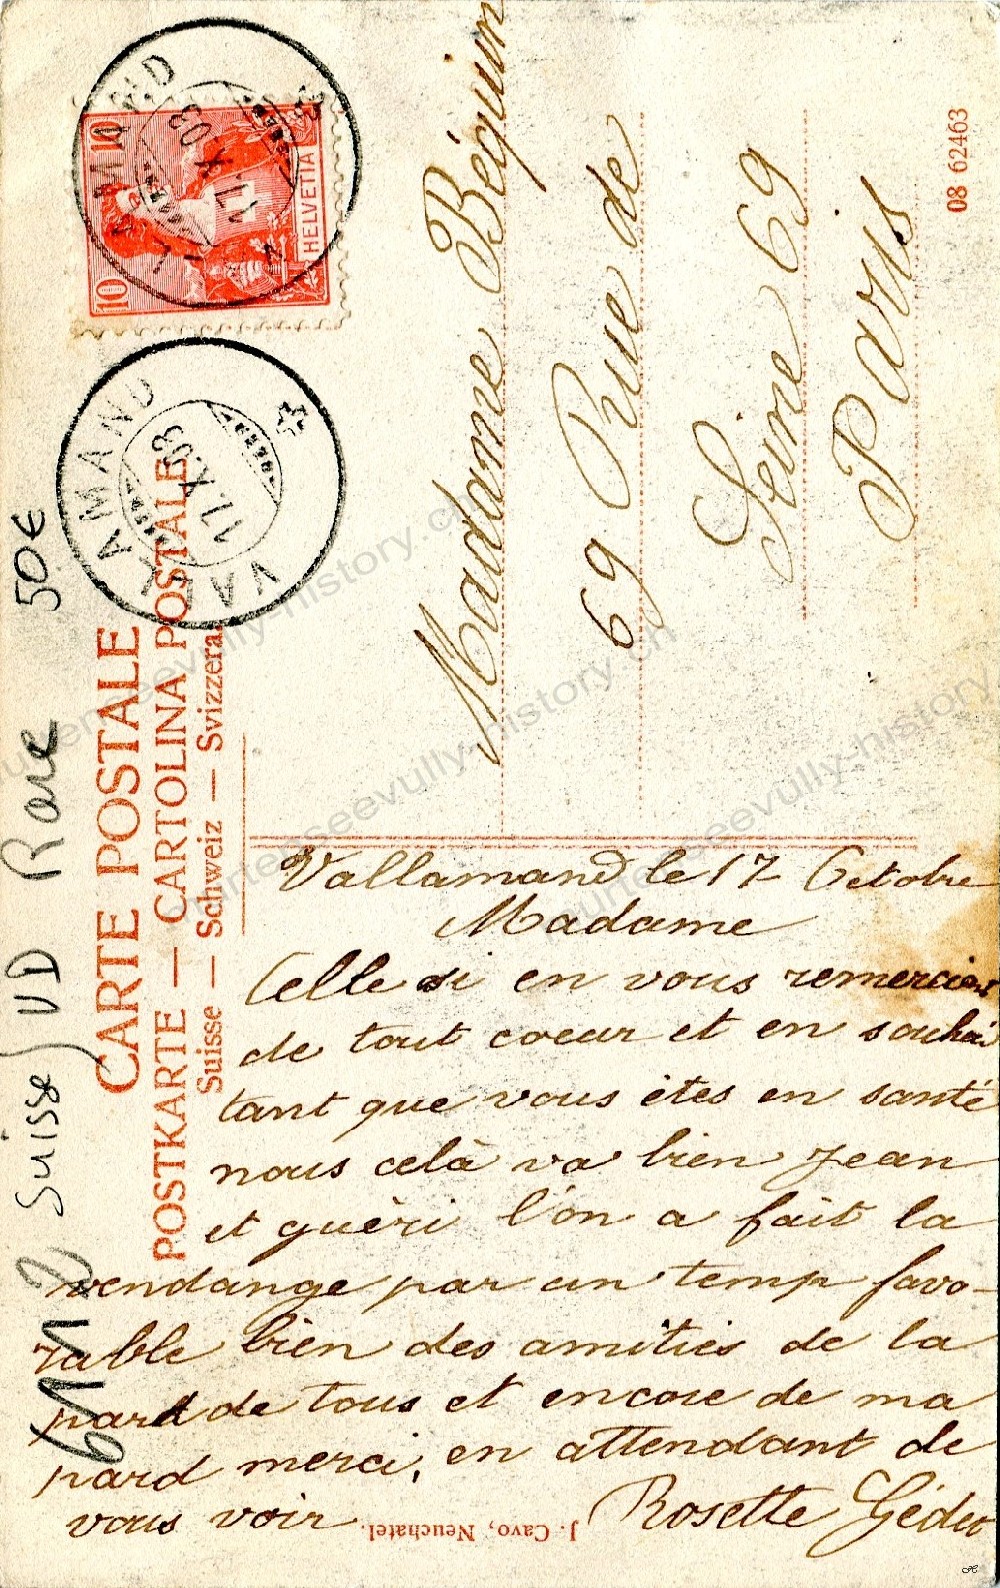 CARTE POSTALE
POSTKARTE — CARTOLINA POSTALE
Suisse — Schweiz — Svizzera.
10 10
HELVETIA
VALLAMAND
17.X.08
Madame Béguin
69 Rue de
Seine 69
Paris
08 62463
Vallamand le 17 Octobre
Madame
Celle si en vous remerciant
de tout coeur et en souhai
tant que vous êtes en santé
nous celà va bien Jean
et guèri l'on a fait la
vendange par un temp favo-
rable bien des amitiés de la
pard de tous et encore de ma
pard merci, en attendant de
vous voir Rosette Gédeo
J. Cavo, Neuchatel.
Suisse VD Rare 50€
murtenseevully-history.ch